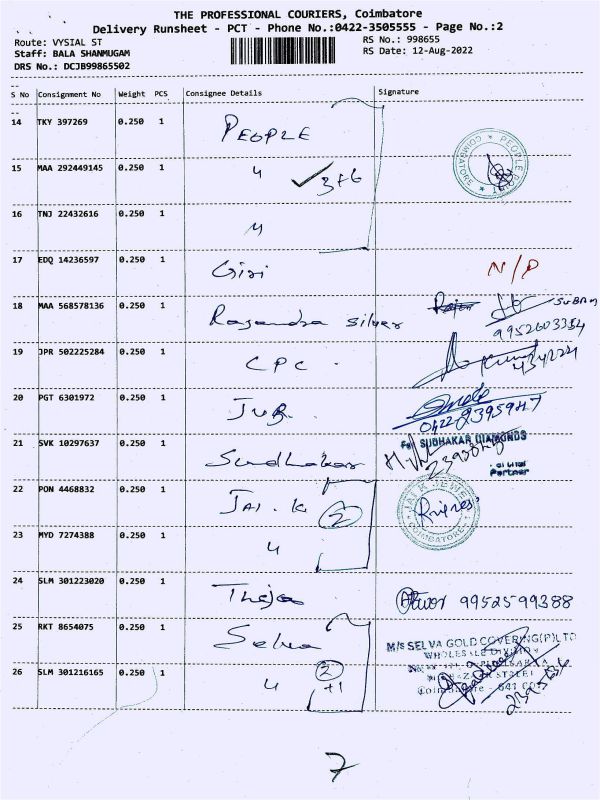 THE PROFESSIONAL COURIERS, Coimbatore
Delivery Runsheet - PCT - Phone No.:0422-3505555 - Page No.:2
Route: VYSIAL ST
RS No.: 998655
Staff: BALA SHANMUGAM
RS Date: 12-Aug-2022
DRS No.: DCJB99865502
S No Consignment No Weight PCS Consignee Details Signature
14 TKY 397269 0.250 1 PEOPLE
COIMBATORE * PEOPLE *
15 MAA 292449145 0.250 1 " 3+6
16 TNJ 22432616 0.250 1 "
17 EDQ 14236597 0.250 1 Giri N/P
18 MAA 568578136 0.250 1 Rajendra silver
9952603354
19 JPR 502225284 0.250 1 CPC.
20 PGT 6301972 0.250 1
0422 2395947
21 SVK 10297637 0.250 1 Sudhakar
For SUDHAKAR DIAMONDS
Partner
22 PON 4468832 0.250 1 JAI. K 2
JAI K JEWEL
COIMBATORE
23 MYD 7274388 0.250 1 "
24 SLM 301223020 0.250 1 Theja 9952599388
25 RKT 8654075 0.250 1 Selva
M/S SELVA GOLD COVERING(P)LTD
WHOLESALE DIVISION
26 SLM 301216165 0.250 1 " 2 +1
Coimbatore - 641 001
7